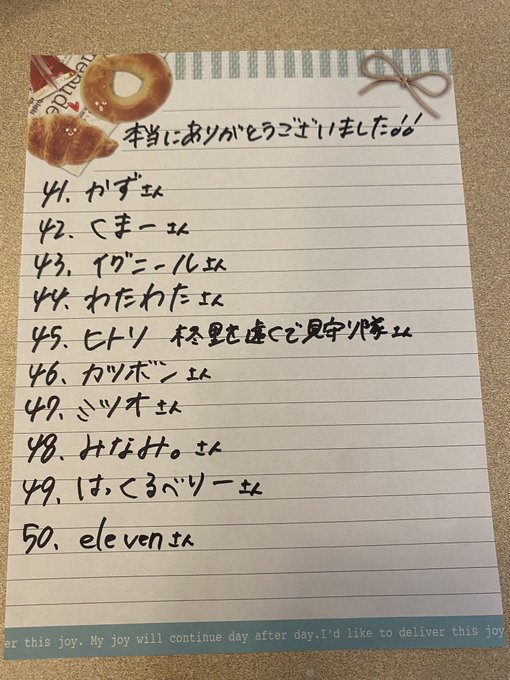 本当にありがとうございました!!
41. かずさん
42. くまーさん
43. イグニールさん
44. わたわたさん
45. ヒトソ 柊里を遠くで見守り隊さん
46. カツボンさん
47. ミツオさん
48. みなみ。さん
49. はっくるべりーさん
50. elevenさん
er this joy. My joy will continue day after day.I'd like to deliver this joy